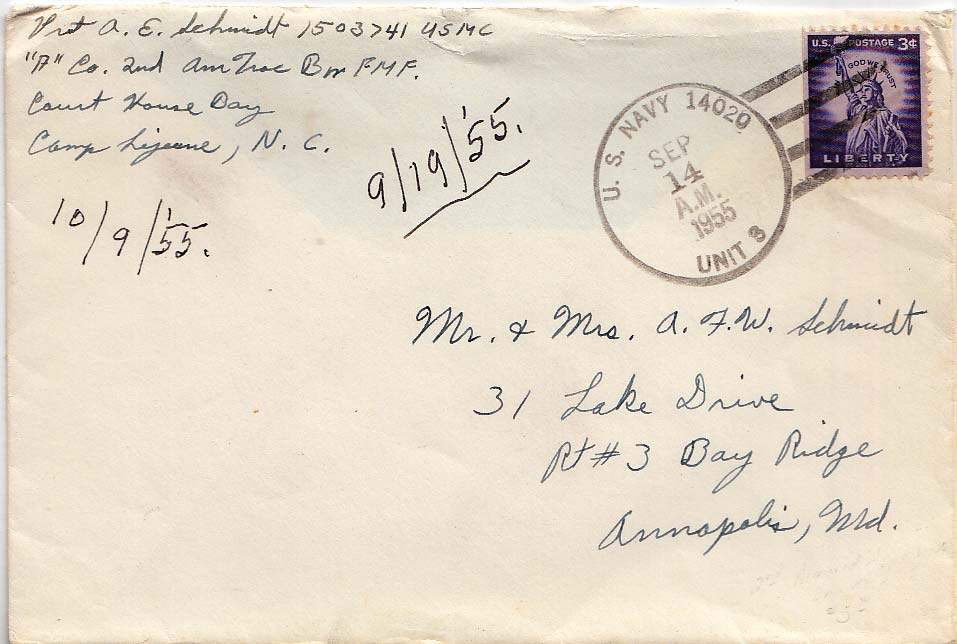 Pvt A. E. Schmidt 1503741 USMC
"A" Co. 2nd AmTrac Bn F.M.F.
Court House Bay
Camp Lejeune, N. C.
9/19/'55.
10/9/'55.
U. S. NAVY 14020
SEP
14
A.M.
1955
UNIT 3
U.S. POSTAGE 3¢
IN GOD WE TRUST
LIBERTY
Mr. & Mrs. A. F. W. Schmidt
31 Lake Drive
Rt #3 Bay Ridge
Annapolis, Md.